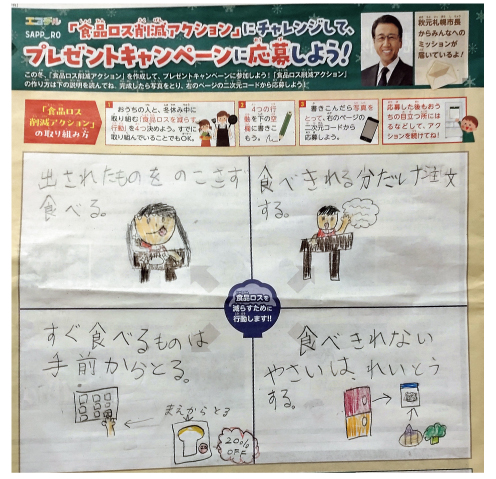 エコチル
SAPP_RO
「食品ロス削減アクション」にチャレンジして、
プレゼントキャンペーンに応募しよう！
秋元札幌市長
からみんなへの
ミッションが
届いているよ！
この冬、「食品ロス削減アクション」を作成して、プレゼントキャンペーンに参加しよう！「食品ロス削減アクション」
の作り方は下の説明を読んでね。完成したら写真をとり、右のページの二次元コードから応募しよう！
「食品ロス
削減アクション」
の取り組み方
1
おうちの人と、冬休み中に
取り組む「食品ロスを減らす
行動」を4つ決めよう。すでに
取り組んでいることでもOK。
2
4つの行
動を下の空
欄に書きこ
もう。
3
書きこんだら写真を
とって、右のページの
二次元コードから
応募しよう。
応募した後もおう
ちの目立つ所には
るなどして、アク
ションを続けてね！
出されたものを のこさず
食べる。
食べきれる分だけ注文
する。
食品ロスを
減らすために
行動します!!
すぐ食べるものは
手前からとる。
まえからとる
20%
OFF
食べきれない
やさいは、れいとう
する。